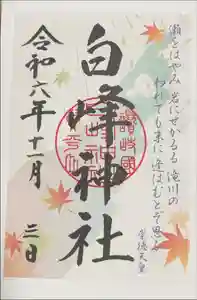 瀬をはやみ 岩にせかるる 滝川の
われても末に 逢はむとぞ思ふ
崇徳天皇
讃岐國
白峰神社
令和六年十一月
三日